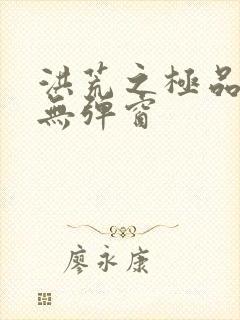 洪荒之極品
無彈窗
廖永康